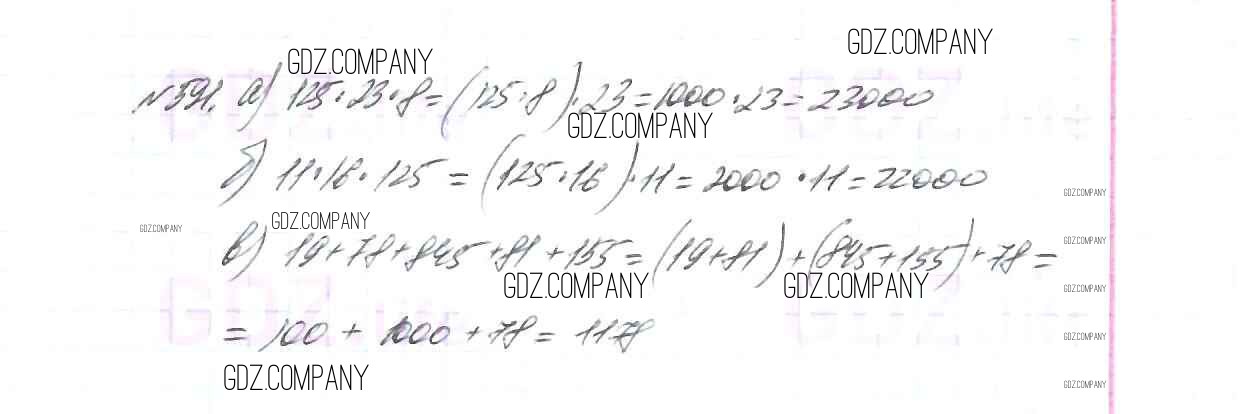 GDZ.COMPANY
GDZ.COMPANY
№591. а) 125·23·8=(125·8)·23=1000·23=23000
GDZ.COMPANY
б) 11·16·125=(125·16)·11=2000·11=22000
GDZ.COMPANY
GDZ.COMPANY
GDZ.COMPANY
в) 19+78+845+81+155=(19+81)+(845+155)+78=
GDZ.COMPANY
GDZ.COMPANY
GDZ.COMPANY
GDZ.COMPANY
=100+1000+78=1178
GDZ.COMPANY
GDZ.COMPANY
GDZ.COMPANY